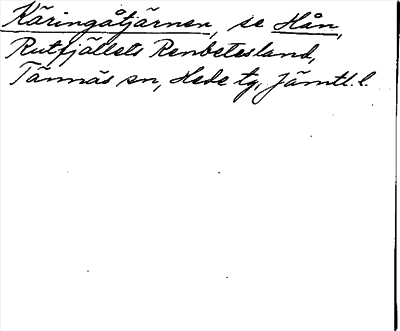 Käringåtjärnen, se Hån,
Rutfjällets Renbetesland,
Tännäs sn, Hede tg, Jämtl. l.